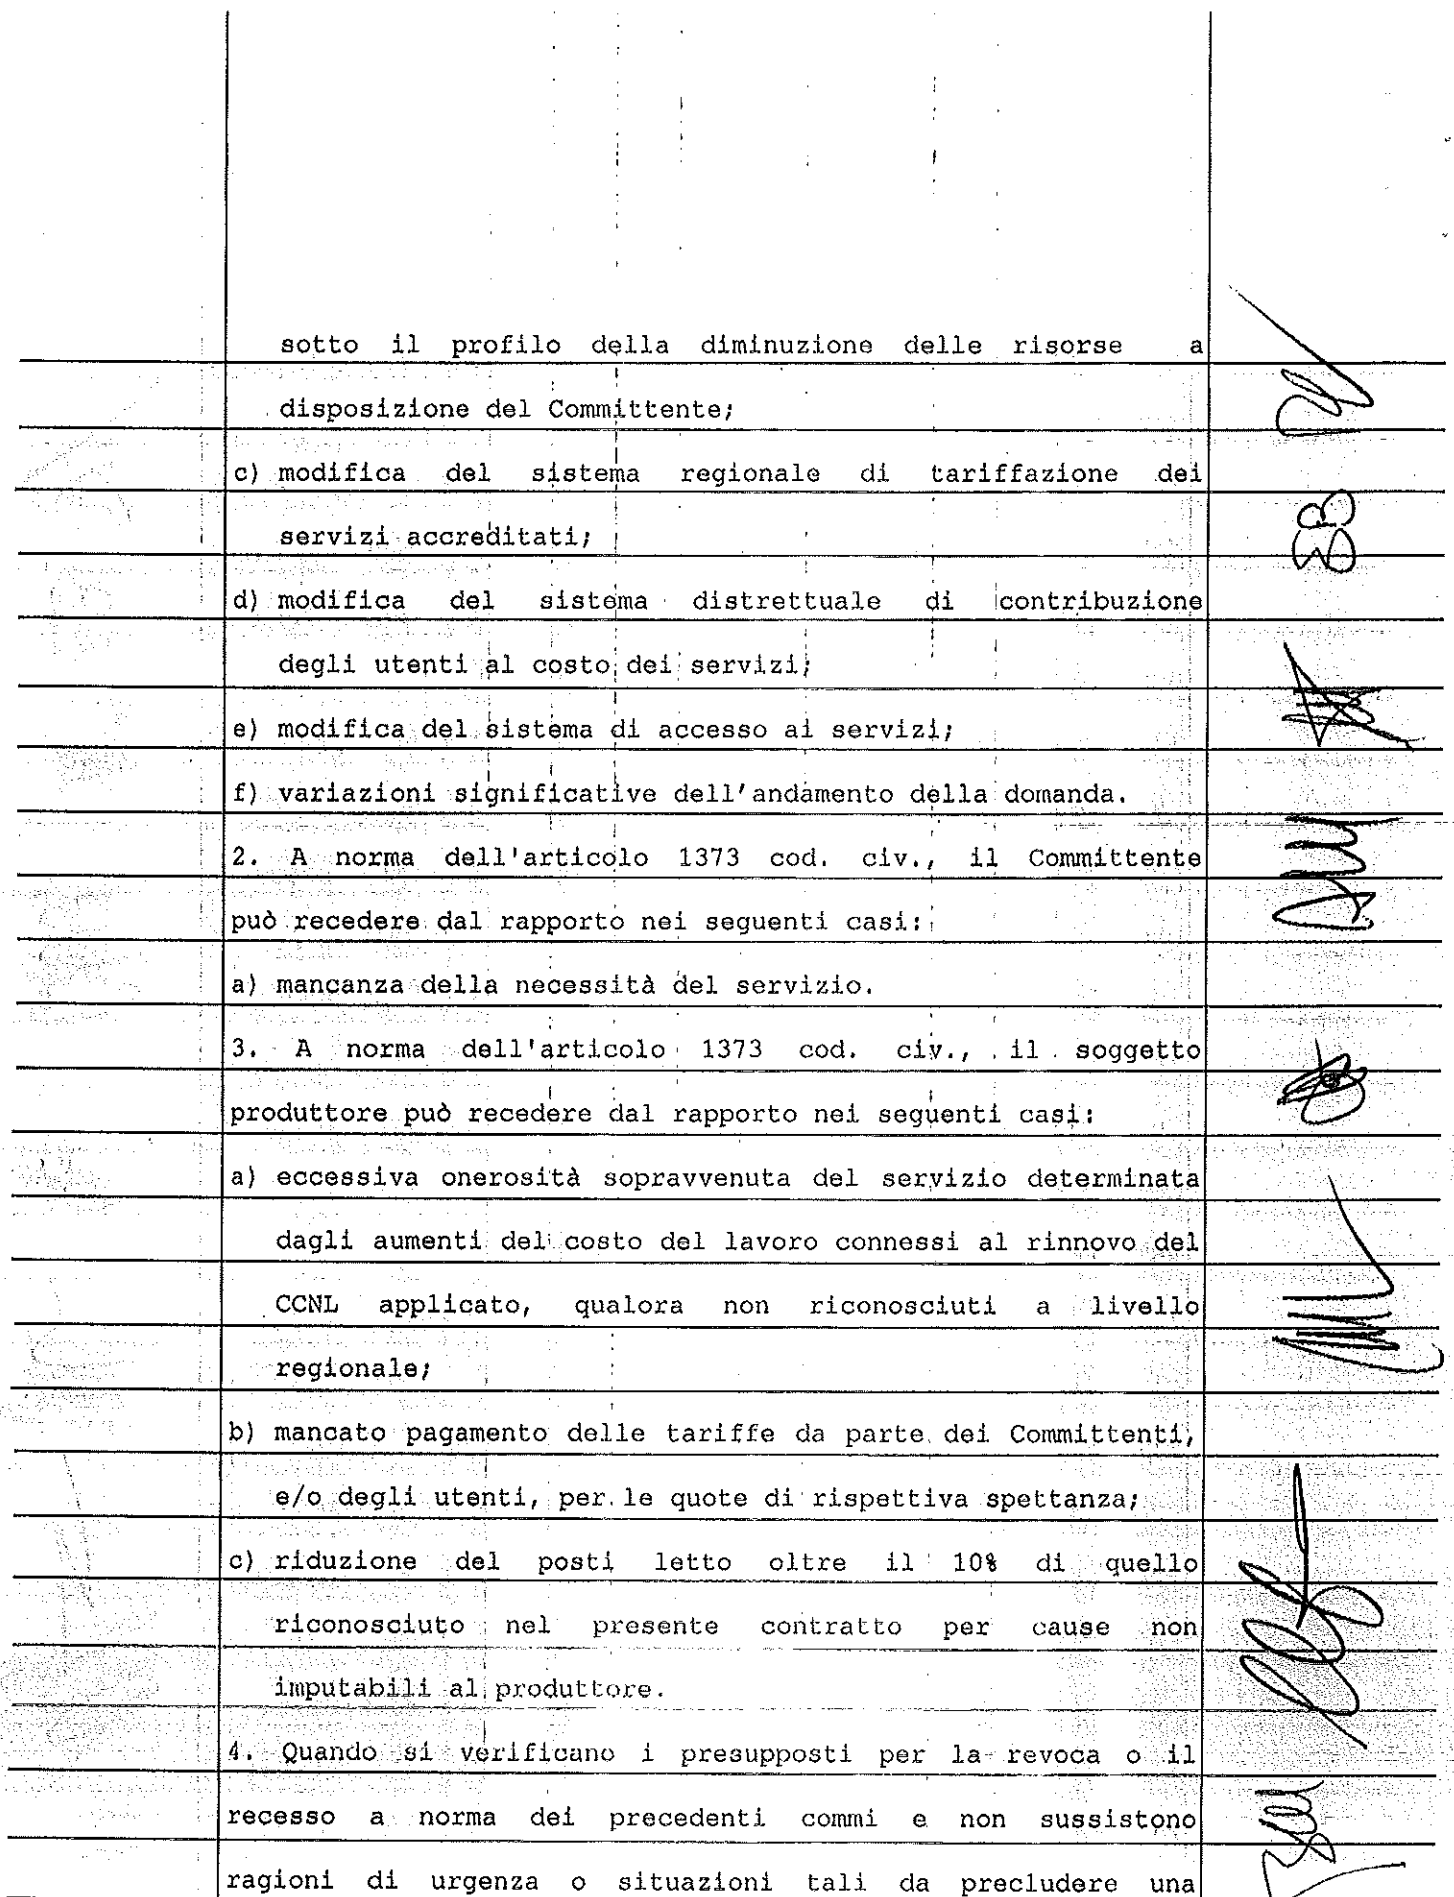 sotto il profilo della diminuzione delle risorse a
disposizione del Committente;
c) modifica del sistema regionale di tariffazione dei
servizi accreditati;
d) modifica del sistema distrettuale di contribuzione
degli utenti al costo dei servizi;
e) modifica del sistema di accesso ai servizi;
f) variazioni significative dell'andamento della domanda.
2. A norma dell'articolo 1373 cod. civ., il Committente
può recedere dal rapporto nei seguenti casi:
a) mancanza della necessità del servizio.
3. A norma dell'articolo 1373 cod. civ., il soggetto
produttore può recedere dal rapporto nei seguenti casi:
a) eccessiva onerosità sopravvenuta del servizio determinata
dagli aumenti del costo del lavoro connessi al rinnovo del
CCNL applicato, qualora non riconosciuti a livello
regionale;
b) mancato pagamento delle tariffe da parte dei Committenti,
e/o degli utenti, per le quote di rispettiva spettanza;
c) riduzione del posti letto oltre il 10% di quello
riconosciuto nel presente contratto per cause non
imputabili al produttore.
4. Quando si verificano i presupposti per la revoca o il
recesso a norma dei precedenti commi e non sussistono
ragioni di urgenza o situazioni tali da precludere una